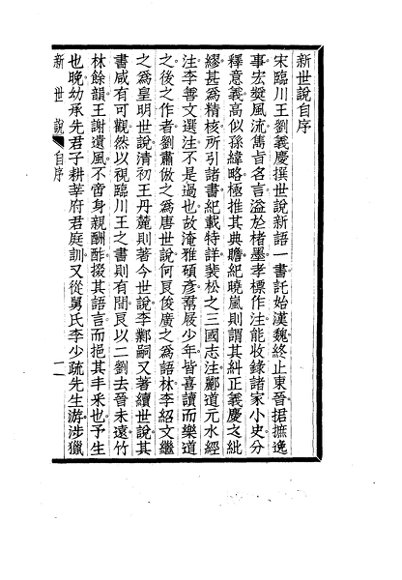 新世說自序
宋臨川王劉義慶撰世說新語一書託始漢魏終止東晉捃摭逸
事宏奬風流雋旨名言溢於楮墨孝標作注能收錄諸家小史分
釋意義高似孫緯略極推其典贍紀曉嵐則謂其糾正義慶之紕
繆甚爲精核所引諸書紀載特詳裴松之三國志注酈道元水經
注李善文選注不是過也故淹雅碩彥羣屐少年皆喜讀而樂道
之後之作者劉肅倣之爲唐世說何良俊廣之爲語林李紹文繼
之爲皇明世說清初王丹麓則著今世說李鄴嗣又著續世說其
書咸有可觀然以視臨川王之書則有間良以二劉去晉未遠竹
林餘韻王謝遺風不啻身親酬酢掇其語言而挹其丰采也予生
也晚幼承先君子耕莘府君庭訓又從舅氏李少疏先生游涉獵
新世說 自序 一